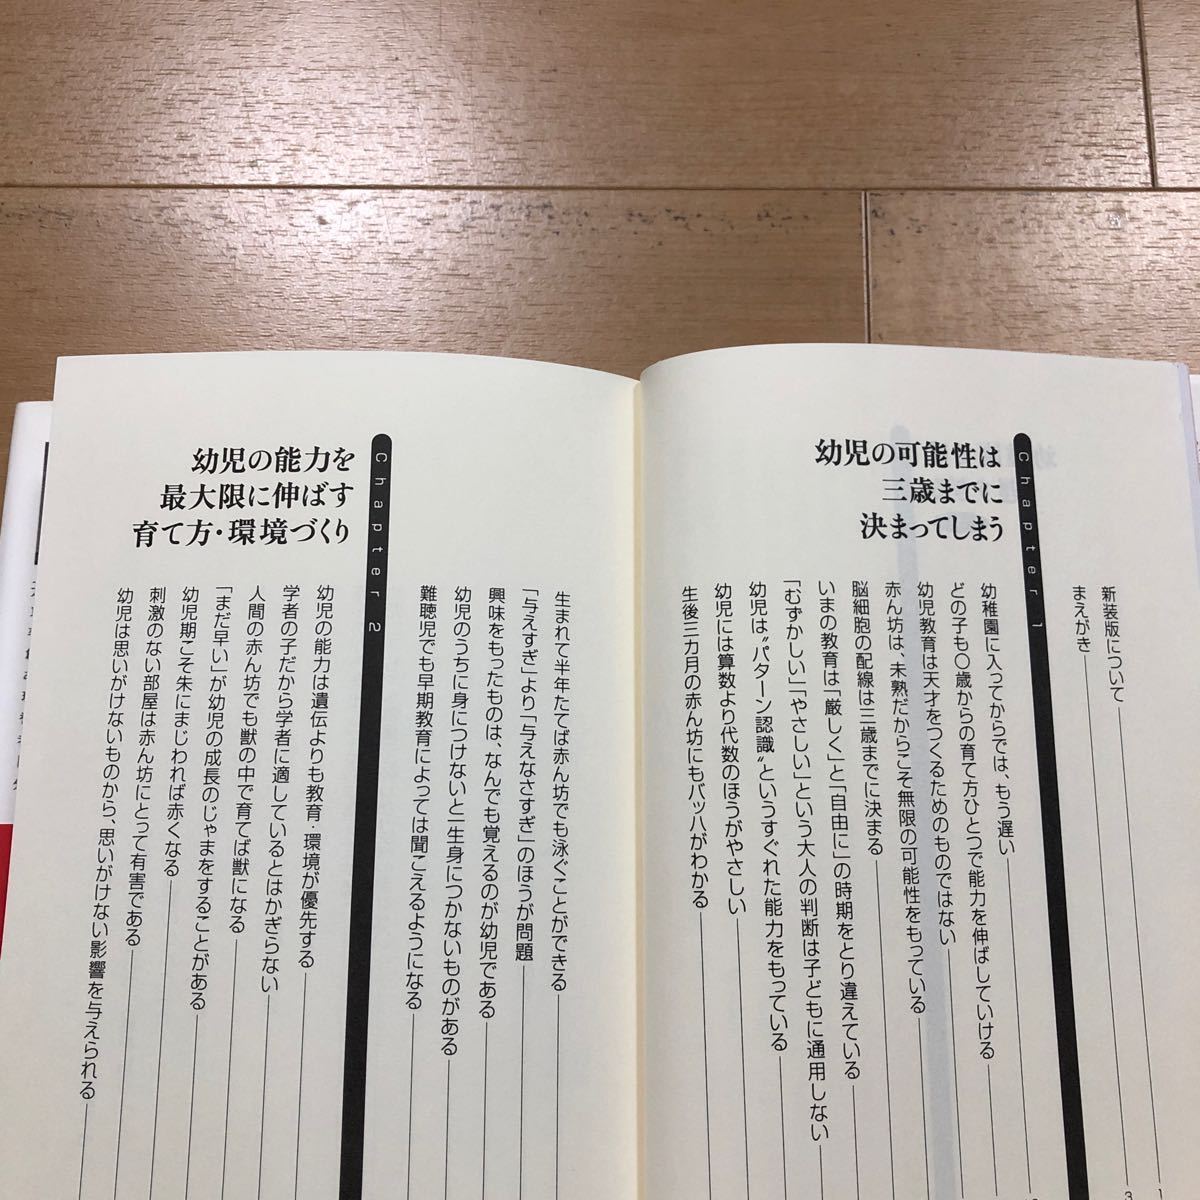 新装版について
まえがき
Chapter 1
幼児の可能性は
三歳までに
決まってしまう
幼稚園に入ってからでは、もう遅い
どの子も〇歳からの育て方ひとつで能力を伸ばしていける
幼児教育は天才をつくるためのものではない
赤ん坊は、未熟だからこそ無限の可能性をもっている
脳細胞の配線は三歳までに決まる
いまの教育は「厳しく」と「自由に」の時期をとり違えている
「むずかしい」「やさしい」という大人の判断は子どもに通用しない
幼児は〝パターン認識〟というすぐれた能力をもっている
幼児には算数より代数のほうがやさしい
生後三カ月の赤ん坊にもバッハがわかる
生まれて半年たてば赤ん坊でも泳ぐことができる
「与えすぎ」より「与えなさすぎ」のほうが問題
興味をもったものは、なんでも覚えるのが幼児である
幼児のうちに身につけないと一生身につかないものがある
難聴児でも早期教育によっては聞こえるようになる
Chapter 2
幼児の能力を
最大限に伸ばす
育て方・環境づくり
幼児の能力は遺伝よりも教育・環境が優先する
学者の子だから学者に適しているとはかぎらない
人間の赤ん坊でも獣の中で育てば獣になる
「まだ早い」が幼児の成長のじゃまをすることがある
幼児期こそ朱にまじわれば赤くなる
刺激のない部屋は赤ん坊にとって有害である
幼児は思いがけないものから、思いがけない影響を与えられる